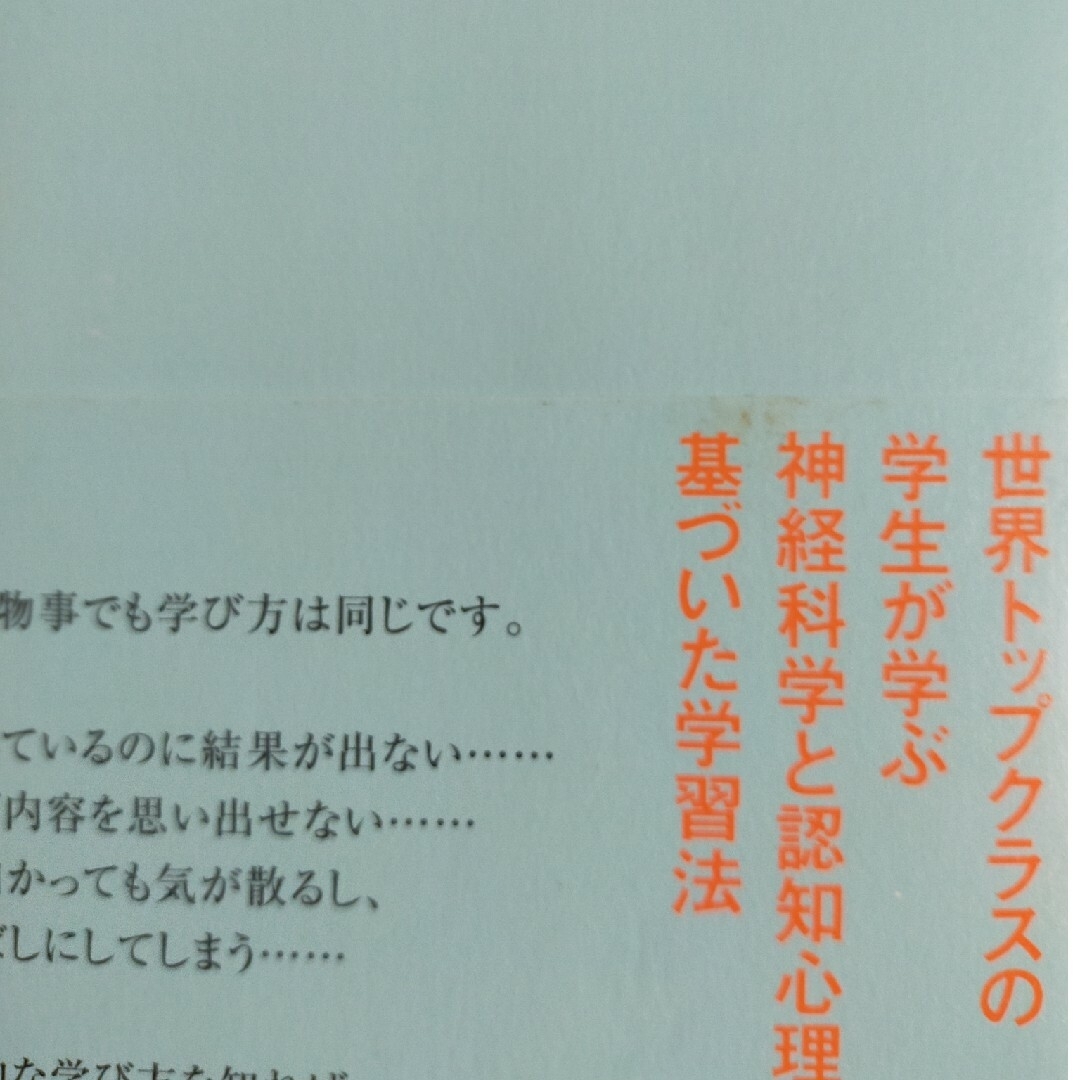 世界トップクラスの
学生が学ぶ
神経科学と認知心理
基づいた学習法
物事でも学び方は同じです。
ているのに結果が出ない……
内容を思い出せない……
かっても気が散るし、
しにしてしまう……
な学び方を知れば